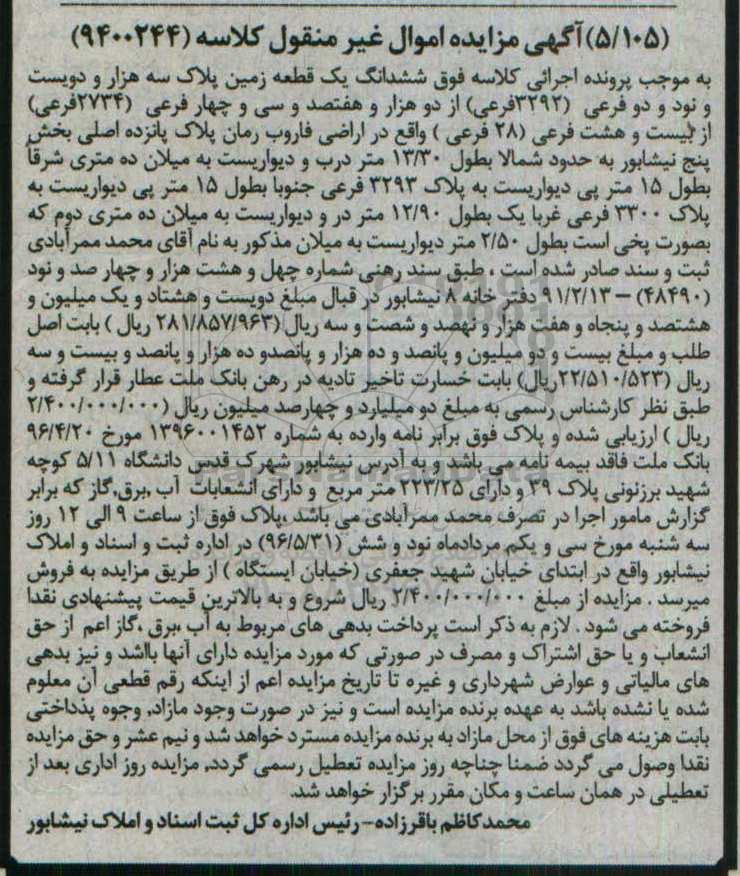 (۵/۱۰۵)آگهی مزایده اموال غیر منقول کلاسه (۹۴۰۰۲۴۴)
به موجب پرونده اجرائی کلاسه فوق ششدانگ یک قطعه زمین پلاک سه هزار و دویست
و نود و دو فرعی (۳۲۹۲فرعی) از دو هزار و هفتصد و سی و چهار فرعی (۲۷۳۴فرعی)
از بیست و هشت فرعی (۲۸ فرعی ) واقع در اراضی فاروب رمان پلاک پانزده اصلی بخش
پنج نیشابور به حدود شمالا بطول ۱۳/۳۰ متر درب و دیواریست به میلان ده متری شرقاً
بطول ۱۵ متر پی دیواریست به پلاک ۳۲۹۳ فرعی جنوبا بطول ۱۵ متر پی دیواریست به
پلاک ۳۳۰۰ فرعی غربا یک بطول ۱۲/۹۰ متر در و دیواریست به میلان ده متری دوم که
بصورت پخی است بطول ۲/۵۰ متر دیواریست به میلان مذکور به نام آقای محمد ممرآبادی
ثبت و سند صادر شده است ، طبق سند رهنی شماره چهل و هشت هزار و چهار صد و نود
(۴۸۴۹۰) – ۹۱/۲/۱۳ دفتر خانه ۸ نیشابور در قبال مبلغ دویست و هشتاد و یک میلیون و
هشتصد و پنجاه و هفت هزار و نهصد و شصت و سه ریال (۲۸۱/۸۵۷/۹۶۳ ریال ) بابت اصل
طلب و مبلغ بیست و دو میلیون و پانصد و ده هزار و پانصدو ده هزار و پانصد و بیست و سه
ریال (۲۲/۵۱۰/۵۲۳ریال) بابت خسارت تاخیر تادیه در رهن بانک ملت عطار قرار گرفته و
طبق نظر کارشناس رسمی به مبلغ دو میلیارد و چهارصد میلیون ریال (۲/۴۰۰/۰۰۰/۰۰۰
ریال ) ارزیابی شده و پلاک فوق برابر نامه وارده به شماره ۱۳۹۶۰۰۱۴۵۲ مورخ ۹۶/۴/۲۰
بانک ملت فاقد بیمه نامه می باشد و به آدرس نیشابور شهرک قدس دانشگاه ۵/۱۱ کوچه
شهید برزنونی پلاک ۳۹ و دارای ۲۲۳/۲۵ متر مربع و دارای انشعابات آب ,برق,گاز که برابر
گزارش مامور اجرا در تصرف محمد ممرآبادی می باشد ،پلاک فوق از ساعت ۹ الی ۱۲ روز
سه شنبه مورخ سی و یکم مردادماه نود و شش (۹۶/۵/۳۱) در اداره ثبت و اسناد و املاک
نیشابور واقع در ابتدای خیابان شهید جعفری (خیابان ایستگاه ) از طریق مزایده به فروش
میرسد . مزایده از مبلغ ۲/۴۰۰/۰۰۰/۰۰۰ ریال شروع و به بالاترین قیمت پیشنهادی نقدا
فروخته می شود . لازم به ذکر است پرداخت بدهی های مربوط به آب ،برق ،گاز اعم از حق
انشعاب و یا حق اشتراک و مصرف در صورتی که مورد مزایده دارای آنها بااشد و نیز بدهی
های مالیاتی و عوارض شهرداری و غیره تا تاریخ مزایده اعم از اینکه رقم قطعی آن معلوم
شده یا نشده باشد به عهده برنده مزایده است و نیز در صورت وجود مازاد, وجوه پذداختی
بابت هزینه های فوق از محل مازاد به برنده مزایده مسترد خواهد شد و نیم عشر و حق مزایده
نقدا وصول می گردد ضمنا چناچه روز مزایده تعطیل رسمی گردد, مزایده روز اداری بعد از
تعطیلی در همان ساعت و مکان مقرر برگزار خواهد شد.
محمدکاظم باقرزاده-رئیس اداره کل ثبت اسناد و املاک نیشابور